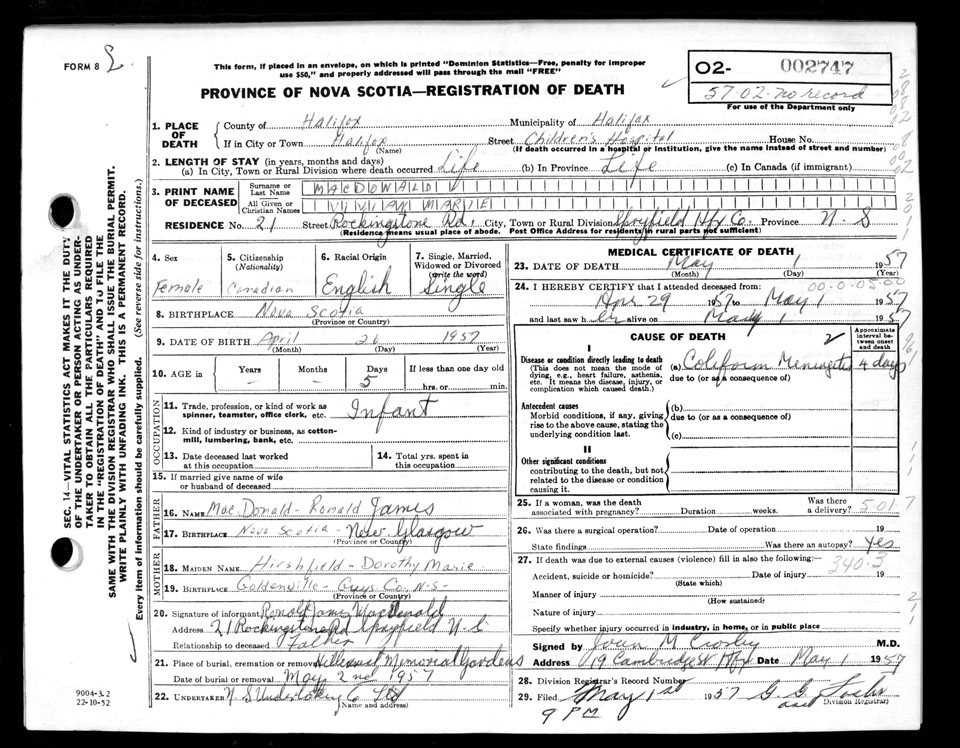 FORM 8
This form, if placed in an envelope, on which is printed "Dominion Statistics—Free, penalty for improper
use $50," and properly addressed will pass through the mail "FREE"
PROVINCE OF NOVA SCOTIA—REGISTRATION OF DEATH
O2- 002747
57-02-no record
For use of the Department only
1. PLACE OF DEATH
County of Halifax Municipality of Halifax
If in City or Town Halifax Street Children's Hospital House No.
(Name) (If death occurred in a hospital or institution, give the name instead of street and number)
2. LENGTH OF STAY (in years, months and days)
(a) In City, Town or Rural Division where death occurred Life (b) In Province Life (c) In Canada (if immigrant)
3. PRINT NAME OF DECEASED
Surname or Last Name MACDONALD
All Given or Christian Names VIVIAN MARIE
RESIDENCE No. 21 Street Rockingstone Rd. City, Town or Rural Division Spryfield Hfx Co. Province N.S
(Residence means usual place of abode. Post Office Address for residents in rural parts not sufficient)
4. Sex Female
5. Citizenship (Nationality) Canadian
6. Racial Origin English
7. Single, Married, Widowed or Divorced (write the word) Single
8. BIRTHPLACE Nova Scotia
(Province or Country)
9. DATE OF BIRTH April 26 1957
(Month) (Day) (Year)
10. AGE in Years – Months – Days 5 If less than one day old
hrs. or min.
OCCUPATION
11. Trade, profession, or kind of work as spinner, teamster, office clerk, etc. Infant
12. Kind of industry or business, as cotton-mill, lumbering, bank, etc.
13. Date deceased last worked at this occupation
14. Total yrs. spent in this occupation
15. If married give name of wife or husband of deceased
FATHER
16. NAME MacDonald - Ronald James
17. BIRTHPLACE Nova Scotia - New Glasgow
(Province or Country)
MOTHER
18. MAIDEN NAME Hirshfield - Dorothy Marie
19. BIRTHPLACE Goldenville - Guys Co. N-S-
(Province or Country)
20. Signature of informant Ronald James MacDonald
Address 21 Rockingstone Rd Spryfield N-S
Relationship to deceased Father
21. Place of burial, cremation or removal Hillcrest Memorial Gardens
Date of burial or removal May 2nd 1957
22. UNDERTAKER N S Undertaking Co Ltd
(Name and address)
MEDICAL CERTIFICATE OF DEATH
23. DATE OF DEATH May 1 1957
(Month) (Day) (Year)
24. I HEREBY CERTIFY that I attended deceased from:
Apr 29 1957 to May 1 1957
and last saw her alive on May 1 1957
CAUSE OF DEATH
Approximate interval between onset and death
I
Disease or condition directly leading to death
(This does not mean the mode of dying, e.g., heart failure, asthenia, etc. It means the disease, injury, or complication which caused death.)
(a) Coliform Meningitis 4 days
due to (or as a consequence of)
Antecedent causes
Morbid conditions, if any, giving rise to the above cause, stating the underlying condition last.
(b)
due to (or as a consequence of)
(c)
II
Other significant conditions
contributing to the death, but not related to the disease or condition causing it.
25. If a woman, was the death associated with pregnancy? Duration weeks. Was there a delivery?
26. Was there a surgical operation? Date of operation 19
State findings Was there an autopsy? Yes
27. If death was due to external causes (violence) fill in also the following: 340-3
Accident, suicide or homicide? Date of injury 19
(State which)
Manner of injury
(How sustained)
Nature of injury
Specify whether injury occurred in industry, in home, or in public place
Signed by Joan M Crosby M.D.
Address 19 Cambridge St Hfx Date May 1 1957
28. Division Registrar's Record Number
29. Filed May 1st 1957
9 PM
Division Registrar)
SEC. 14—VITAL STATISTICS ACT MAKES IT THE DUTY
OF THE UNDERTAKER OR PERSON ACTING AS UNDER-
TAKER TO OBTAIN ALL THE PARTICULARS REQUIRED
IN THE "REGISTRATION OF DEATH" AND TO FILE THE
SAME WITH THE DIVISION REGISTRAR WHO SHALL ISSUE THE BURIAL PERMIT.
WRITE PLAINLY WITH UNFADING INK. THIS IS A PERMANENT RECORD.
Every item of information should be carefully supplied. (See reverse side for instructions.)
9004-3.2
22-10-52